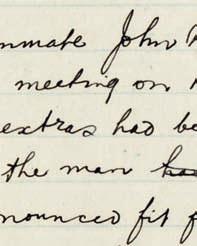 nmate John
meeting on
extras had be
the man
nounced fit f